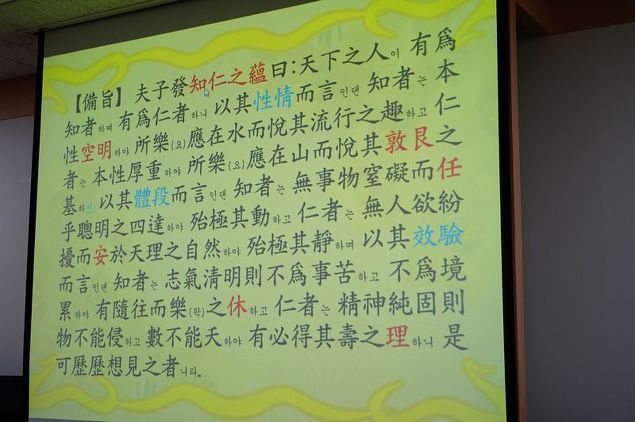 【備旨】 夫子發知仁之蘊曰:天下之人이 有爲
知者하며 有爲仁者하니 以其性情而言인댄 知者는 本
性空明하야 所樂(요)應在水而悅其流行之趣하고 仁
者는 本性厚重하야 所樂(요)應在山而悅其敦艮之
基하며 以其體段而言인댄 知者는 無事物窒礙而任
乎聰明之四達하야 殆極其動하고 仁者는 無人欲紛
擾而安於天理之自然하야 殆極其靜하며 以其效驗
而言인댄 知者는 志氣淸明則不爲事苦하고 不爲境
累하야 有隨往而樂(락)之休하고 仁者는 精神純固則
物不能侵하고 數不能夭하야 有必得其壽之理하니 是
可歷歷想見之者니라。